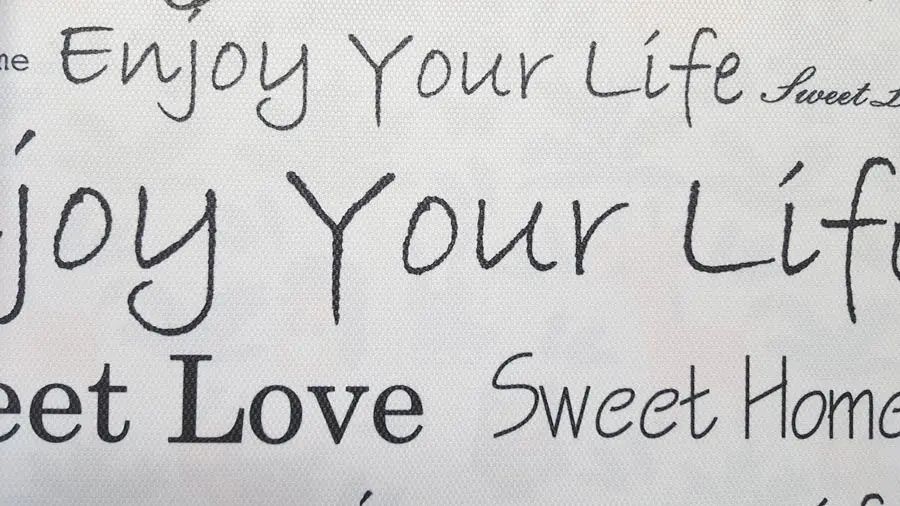 me Enjoy Your Life Sweet L
joy Your Life
eet Love Sweet Home